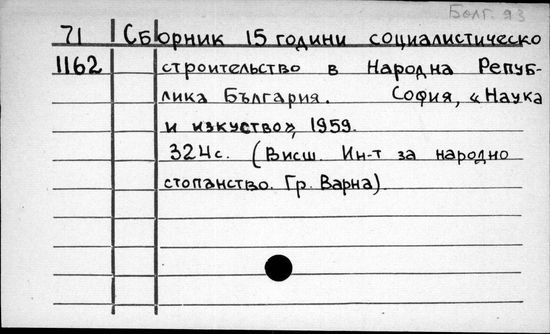 Болг. 93
71 Сборник 15 години социалистическо
1162 строителство в Народна Репуб-
лика България. София, «Наука
и изкуство», 1959.
324с. (Висш. Ин-т за народно
стопанство. Гр. Варна).